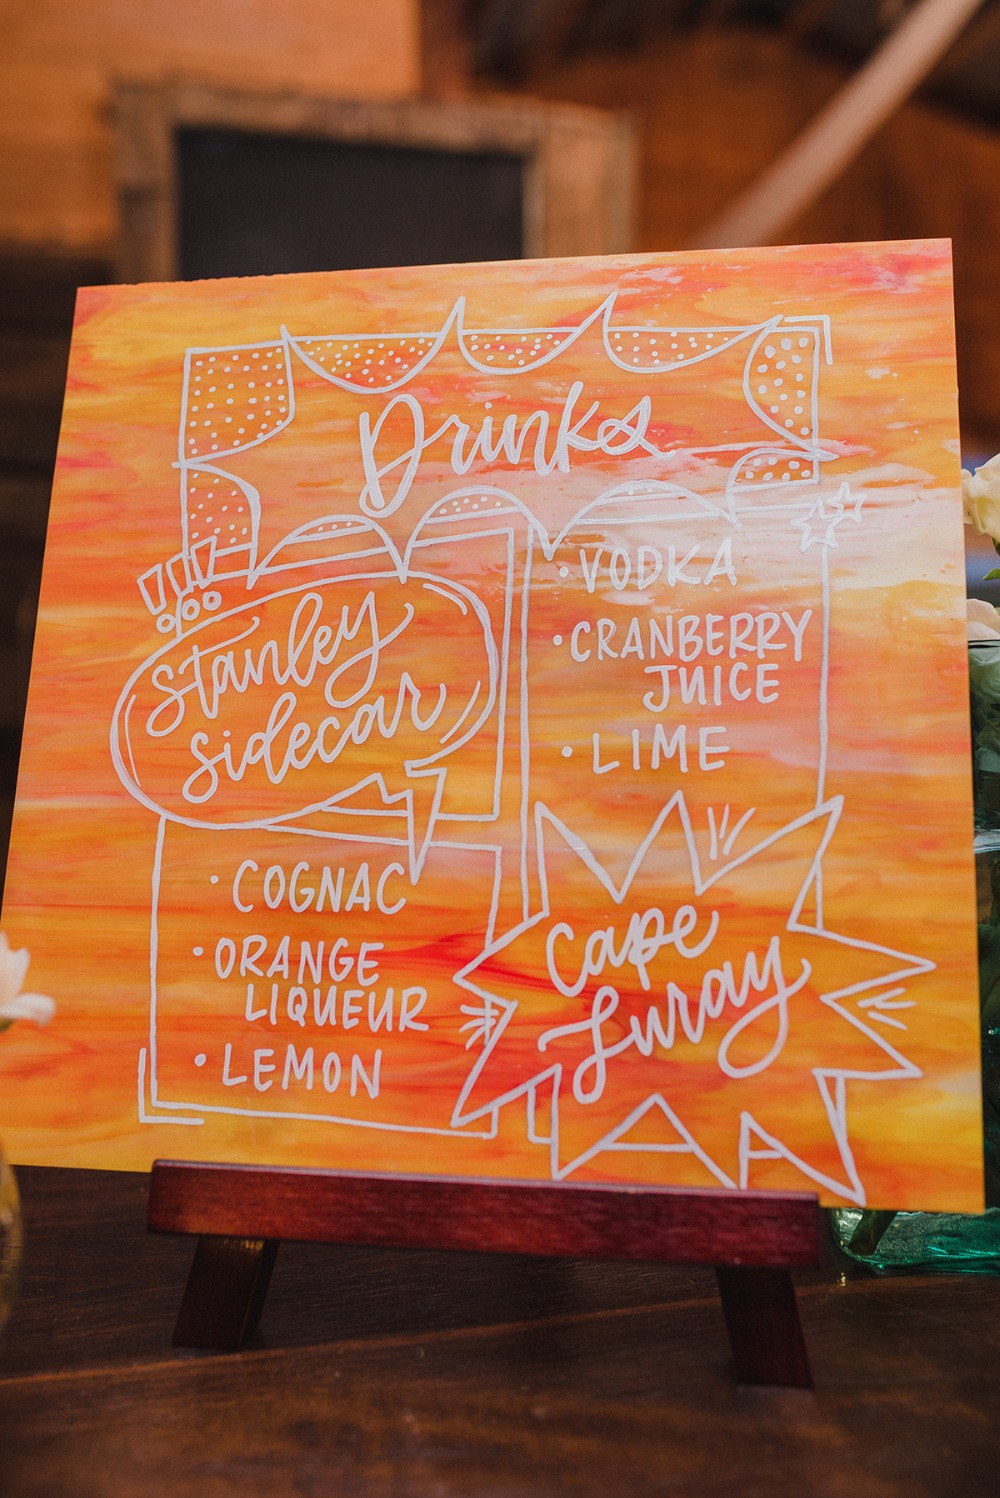 Drinks
!!!
Stanley
Sidecar
• COGNAC
• ORANGE
LIQUEUR
• LEMON
• VODKA
• CRANBERRY
JUICE
• LIME
Cape
Luray